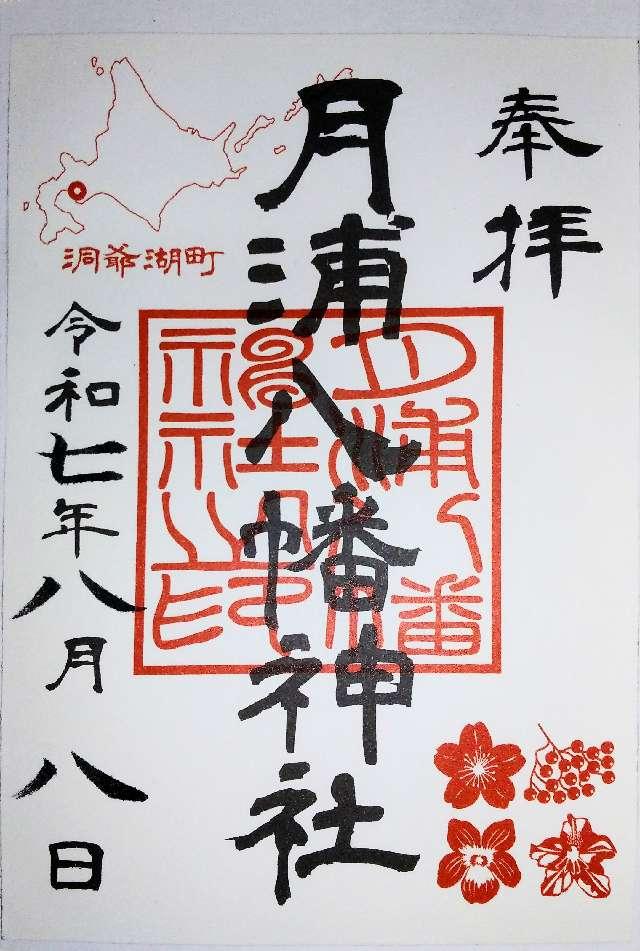 奉拝
月浦八幡神社
月浦八幡神社之印
洞爺湖町
令和七年八月八日